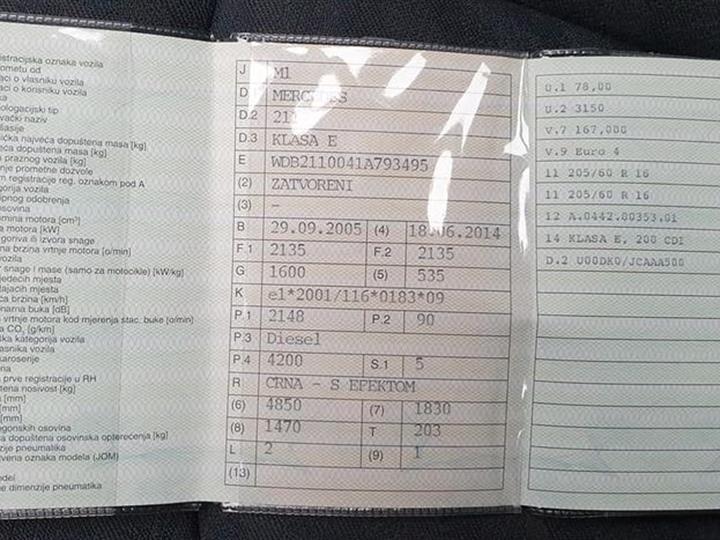 istracijska oznaka vozila
ometu od
aci o vlasniku vozila
aci o korisniku vozila
ka
ologacijski tip
vački naziv
šasije
ička najveća dopuštena masa [kg]
eća dopuštena masa [kg]
praznog vozila [kg]
nje prometne dozvole
m registracije reg. oznakom pod A
gorija vozila
ipnog odobrenja
osovina
mina motora [cm³]
motora [kW]
goriva ili izvora snage
na brzina vrtnje motora [o/min]
vozila
snage i mase (samo za motocikle) [kW/kg]
jedećih mjesta
tajaćih mjesta
ća brzina [km/h]
onarna buka [dB]
vrtnje motora kod mjerenja stac. buke [o/min]
a CO₂ [g/km]
ška kategorija vozila
asnika vozila
karoserije
na
prve registracije u RH
tena nosivost [kg]
[mm]
[mm]
[mm]
gonskih osovina
a dopuštena osovinska opterećenja [kg]
zije pneumatika
tvena oznaka modela (JOM)
odel
e dimenzije pneumatika
J M1
D.1 MERCEDES
D.2 211
D.3 KLASA E
E WDB2110041A793495
(2) ZATVORENI
(3) –
B 29.09.2005 (4) 18.06.2014
F.1 2135 F.2 2135
G 1600 (5) 535
K e1*2001/116*0183*09
P.1 2148 P.2 90
P.3 Diesel
P.4 4200 S.1 5
R CRNA - S EFEKTOM
(6) 4850 (7) 1830
(8) 1470 T 203
L 2 (9) 1
(13)
U.1 78,00
U.2 3150
V.7 167,000
V.9 Euro 4
11 205/60 R 16
11 205/60 R 16
12 A.0442.00353.01
14 KLASA E, 200 CDI
D.2 U00DK0/JCAAA500